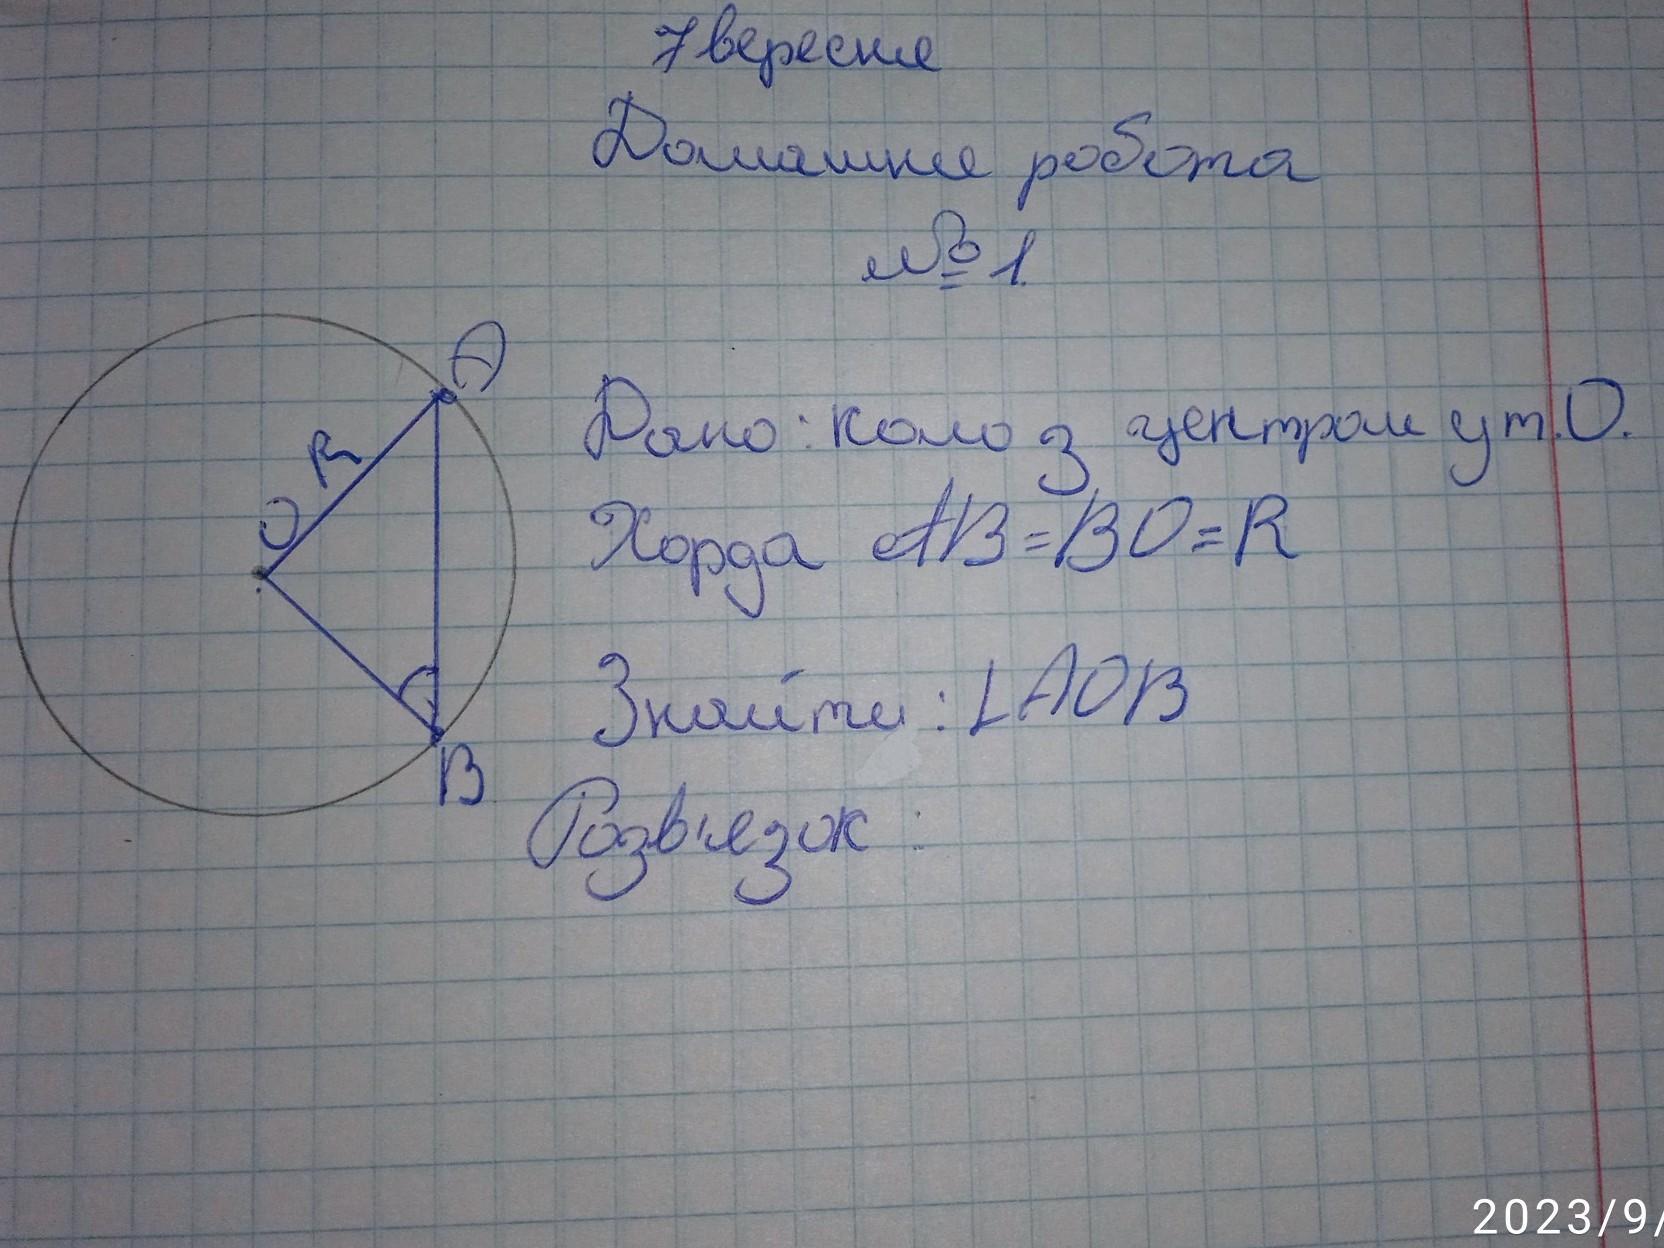 7 вересня
Домашня робота
№ 1.
A
R
O
B
Дано: коло з центром у т. О.
Хорда AB = BO = R
Знайти: ∟AOB
Розв'язок:
2023/9/